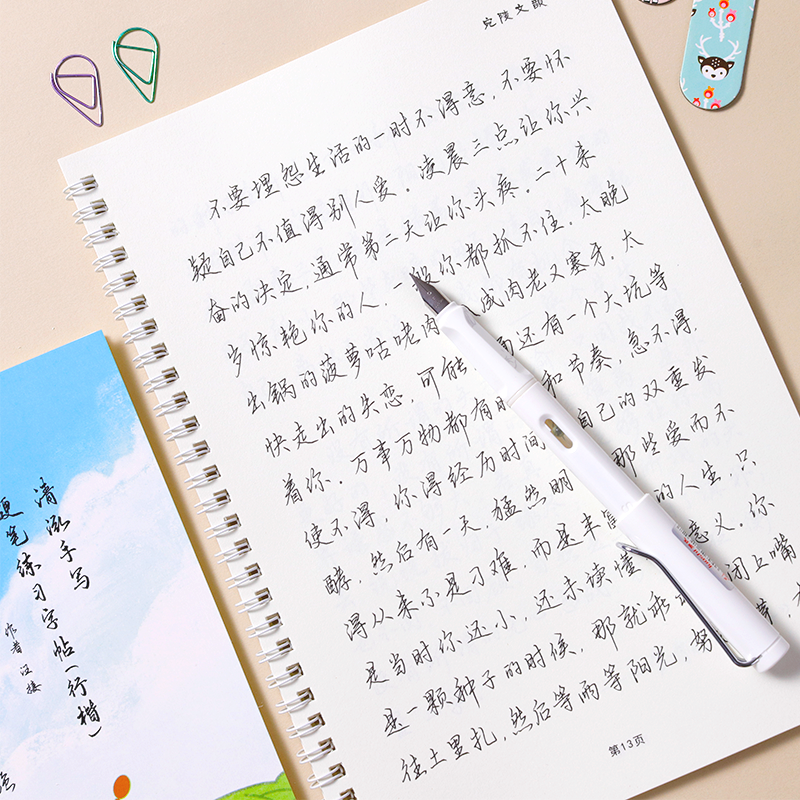 宛陵文
不要埋怨生活的一时不得意，不要怀
疑自己不值得别人爱。凌晨三点让你兴
奋的决定，通常第二天让你头疼。二十来
岁惊艳你的人，一般你都抓不住，太晚
出锅的菠萝咕咾肉 成肉老又塞牙，太
快走出的失恋，可能 面还有一个大坑等
着你。万事万物都有时 和节奏，急不得，
使不得，你得经历时间 自己的双重发
酵，然后有一天，猛然明 那些爱而不
得从来不是刁难，而是丰富 的人生，只
是当时你还小，还未读懂 意义。你
是一颗种子的时候，那就乖 闭上嘴
往土里扎，然后等雨等阳光，努
第13页
清泓手写
硬笔练习字帖（行楷）
作者